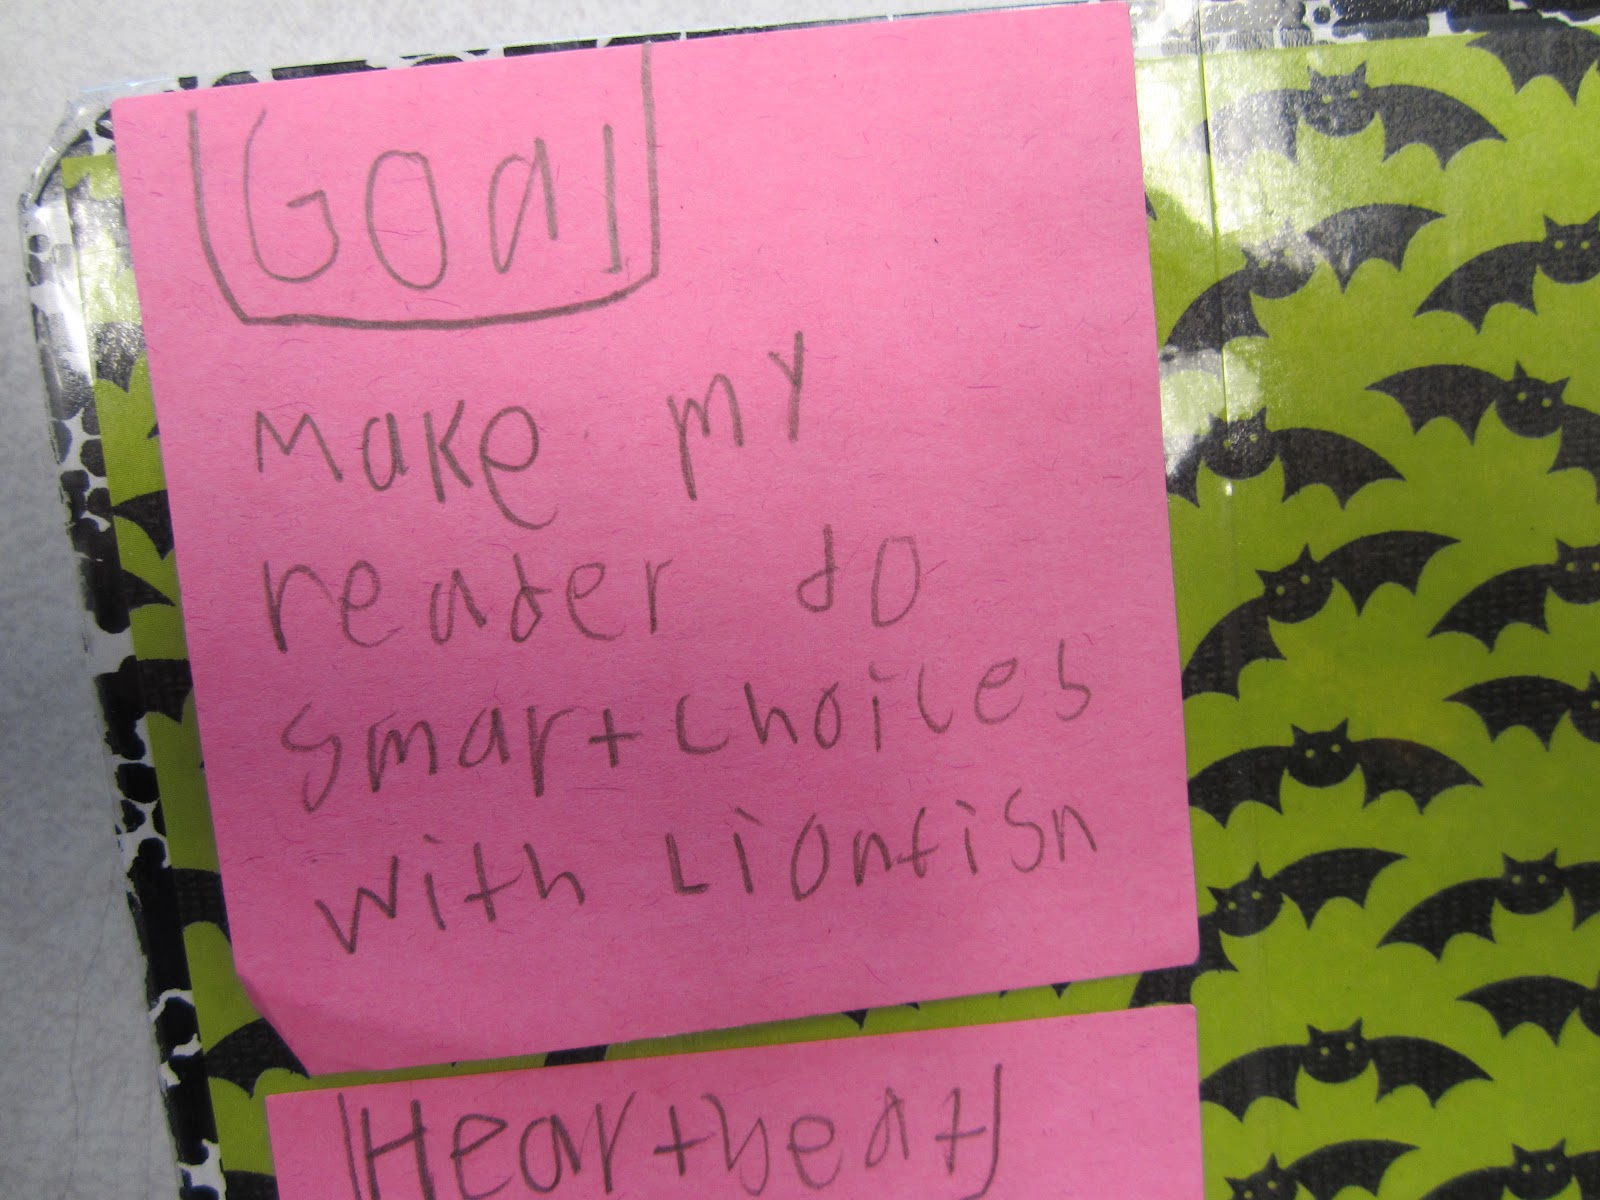 Goal
Make my
reader do
smart choices
with Lionfish
Heartbeat